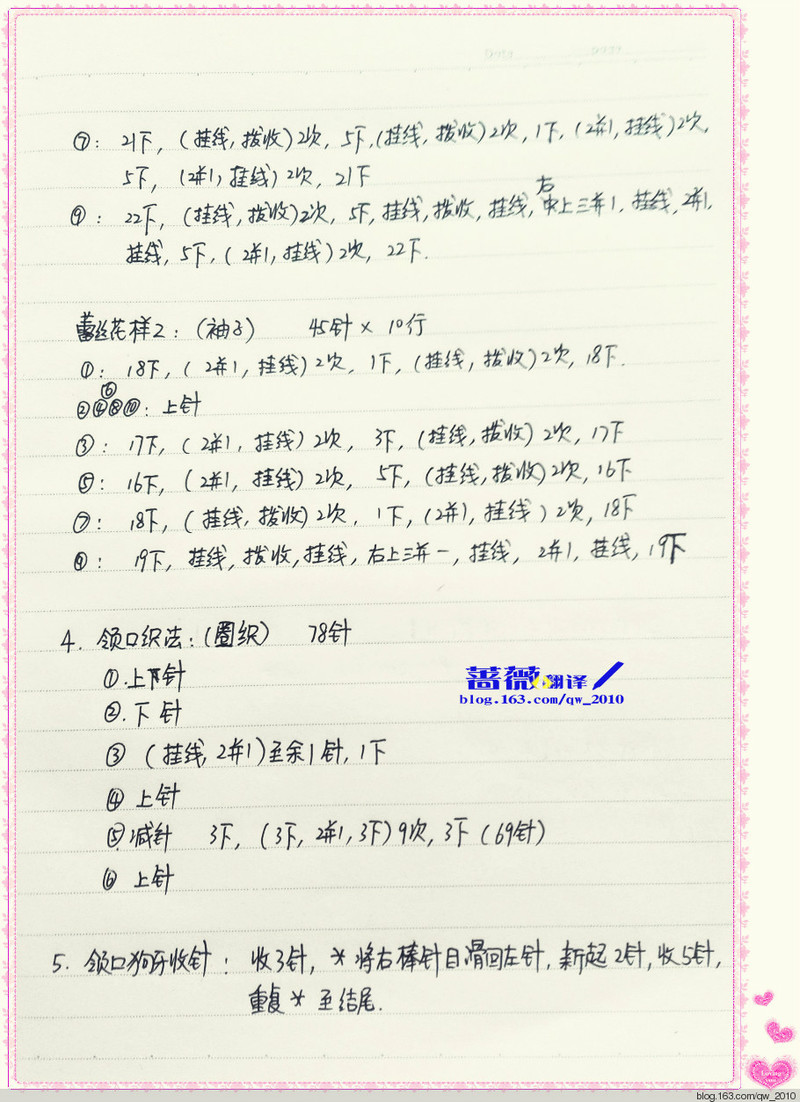 ⑦: 21下, (挂线, 拨收)2次, 5下, (挂线, 拨收)2次, 1下, (2并1, 挂线)2次,
5下, (2并1, 挂线)2次, 21下
右
⑨: 22下, (挂线, 拨收)2次, 5下, 挂线, 拨收, 挂线, 中上三并1, 挂线, 2并1,
挂线, 5下, (2并1, 挂线)2次, 22下.
蕾丝花样2: (袖子) 45针 × 10行
①: 18下, (2并1, 挂线)2次, 1下, (挂线, 拨收)2次, 18下.
⑥
②④⑧⑩: 上针
③: 17下, (2并1, 挂线)2次, 3下, (挂线, 拨收)2次, 17下
⑤: 16下, (2并1, 挂线)2次, 5下, (挂线, 拨收)2次, 16下
⑦: 18下, (挂线, 拨收)2次, 1下, (2并1, 挂线)2次, 18下
⑨: 19下, 挂线, 拨收, 挂线, 右上三并一, 挂线, 2并1, 挂线, 19下
4. 领口织法: (圈织) 78针
①. 上针
②. 下针
③ (挂线, 2并1)至余1针, 1下
④ 上针
⑤. 减针 3下, (3下, 2并1, 3下)9次, 3下 (69针)
⑥ 上针
5. 领口狗牙收针: 收3针, * 将右棒针目滑回左针, 新起2针, 收5针,
重复 * 至结尾.
蔷薇翻译
blog.163.com/qw_2010
Loving you
blog.163.com/qw_2010